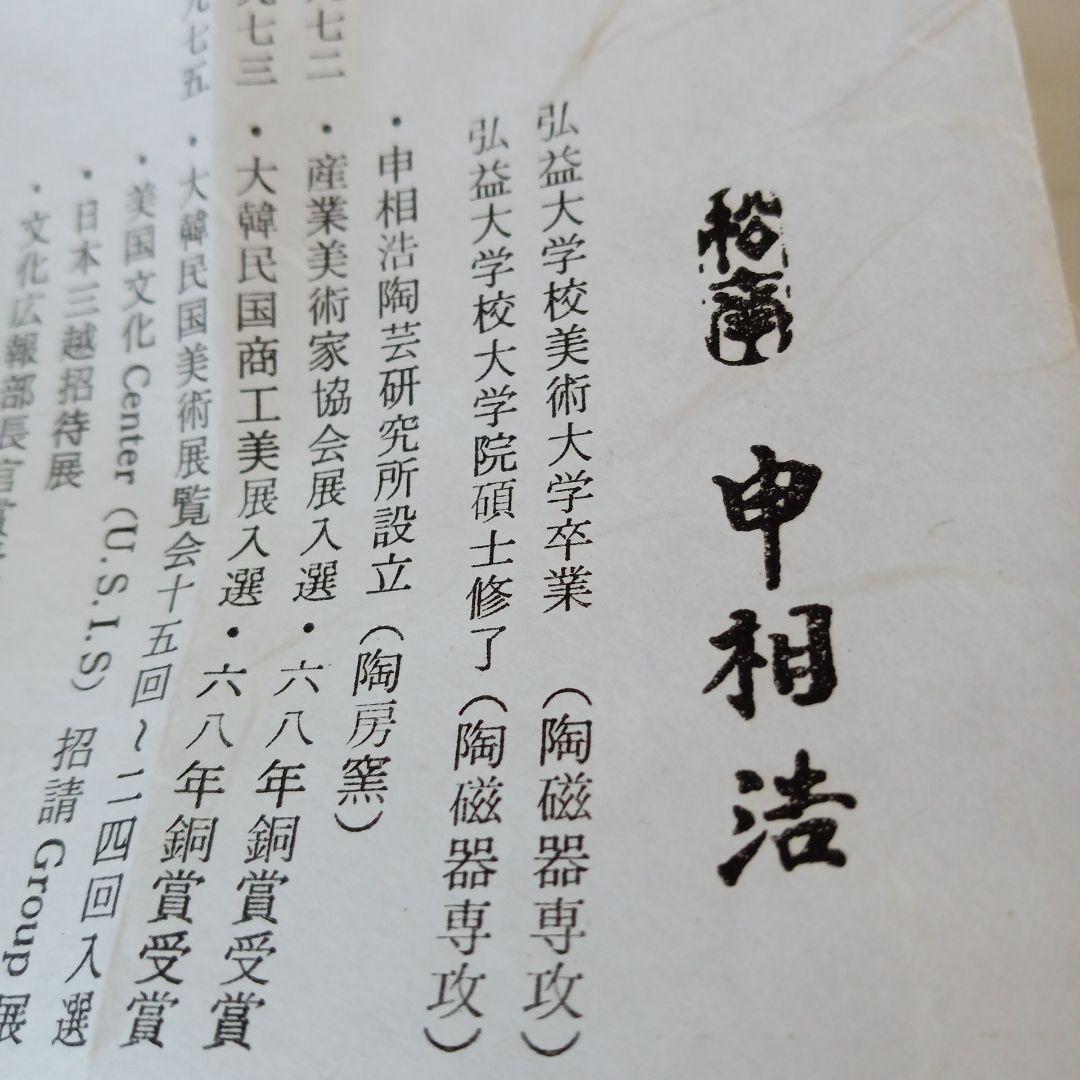 申相浩
弘益大学校美術大学卒業（陶磁器専攻）
弘益大学校大学院碩士修了（陶磁器専攻）
・申相浩陶芸研究所設立（陶房窯）
七二・産業美術家協会展入選・六八年銅賞受賞
七三・大韓民国商工美展入選・六八年銅賞受賞
七五・大韓民国美術展覧会十五回～二四回入選
・美国文化Center（U.S.I.S）招請Group展
・日本三越招待展
・文化広報部長官賞